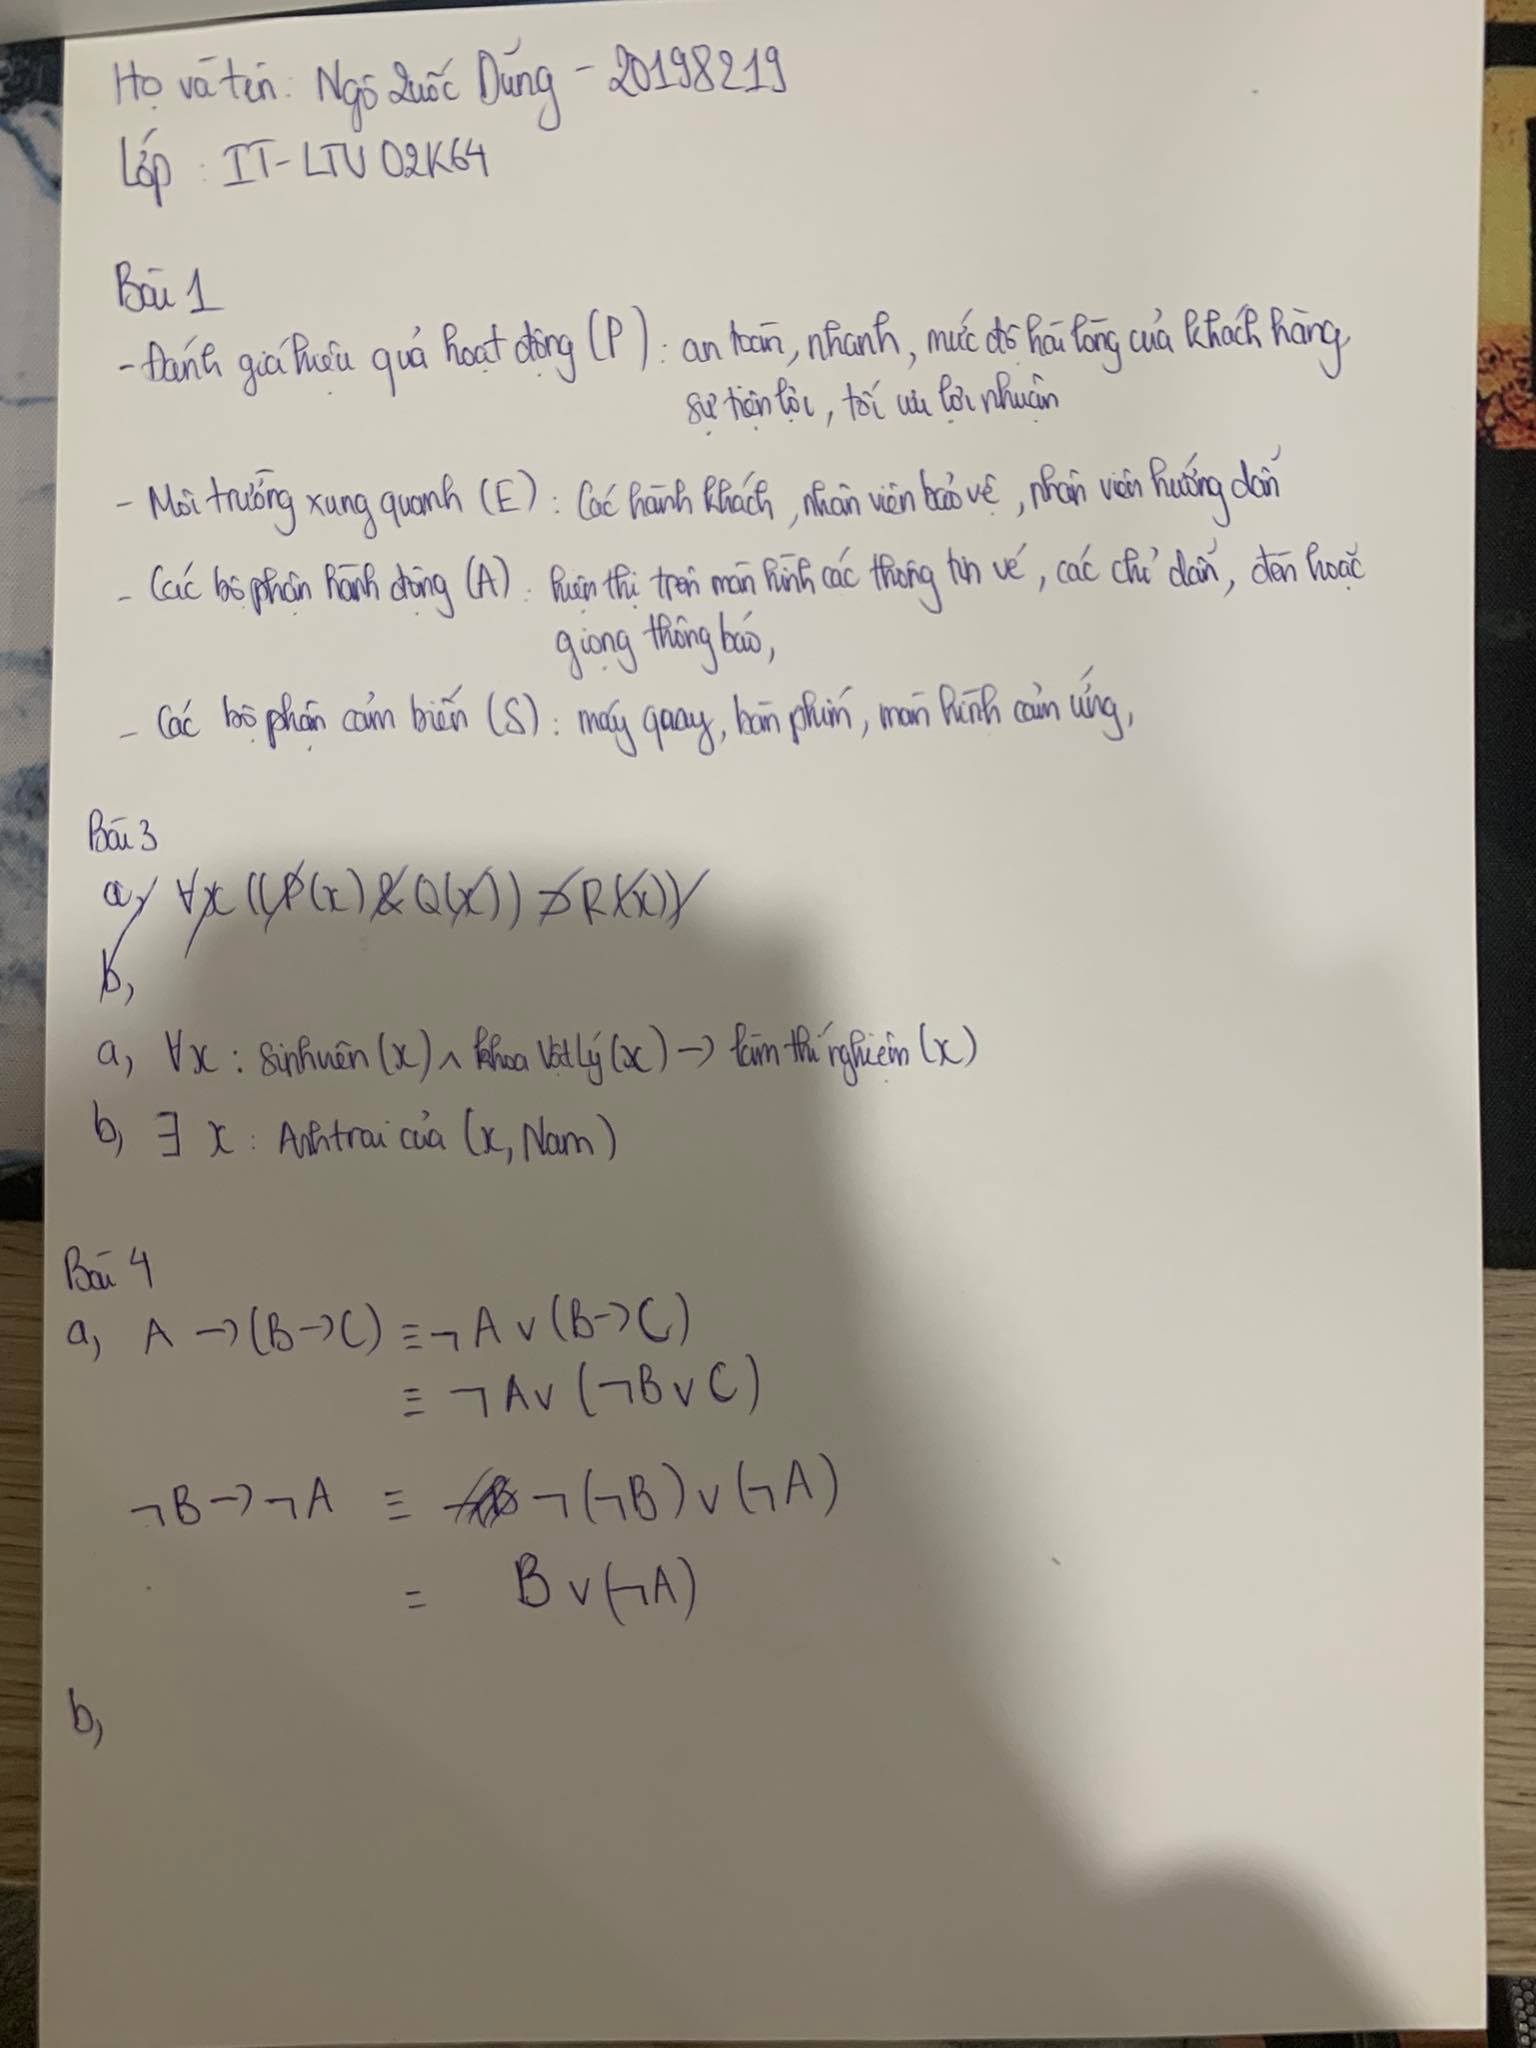 Họ và tên: Ngô Quốc Dũng - 20198219
Lớp : IT-LTU 02K64
Bài 1
- Đánh giá hiệu quả hoạt động (P): an toàn, nhanh, mức độ hài lòng của khách hàng,
sự tiện lợi, tối ưu lợi nhuận
- Môi trường xung quanh (E): Các hành khách, nhân viên bảo vệ, nhân viên hướng dẫn
- Các bộ phận hành động (A): hiện thị trên màn hình các thông tin vé, các chỉ dẫn, đèn hoặc
giọng thông báo,
- Các bộ phận cảm biến (S): máy quay, bàn phím, màn hình cảm ứng,
Bài 3
a, ∀x ((P(x) & Q(x)) ⊃ R(x))
b,
a, ∀x : Sinhviên (x) ∧ khoa Vật lý (x) → làm thí nghiệm (x)
b, ∃ x : Anh trai của (x, Nam)
Bài 4
a, A → (B → C) ≡ ¬ A ∨ (B → C)
≡ ¬ A ∨ (¬B ∨ C)
¬B → ¬A ≡ ¬ (¬B) ∨ (¬A)
= B ∨ (¬A)
b,